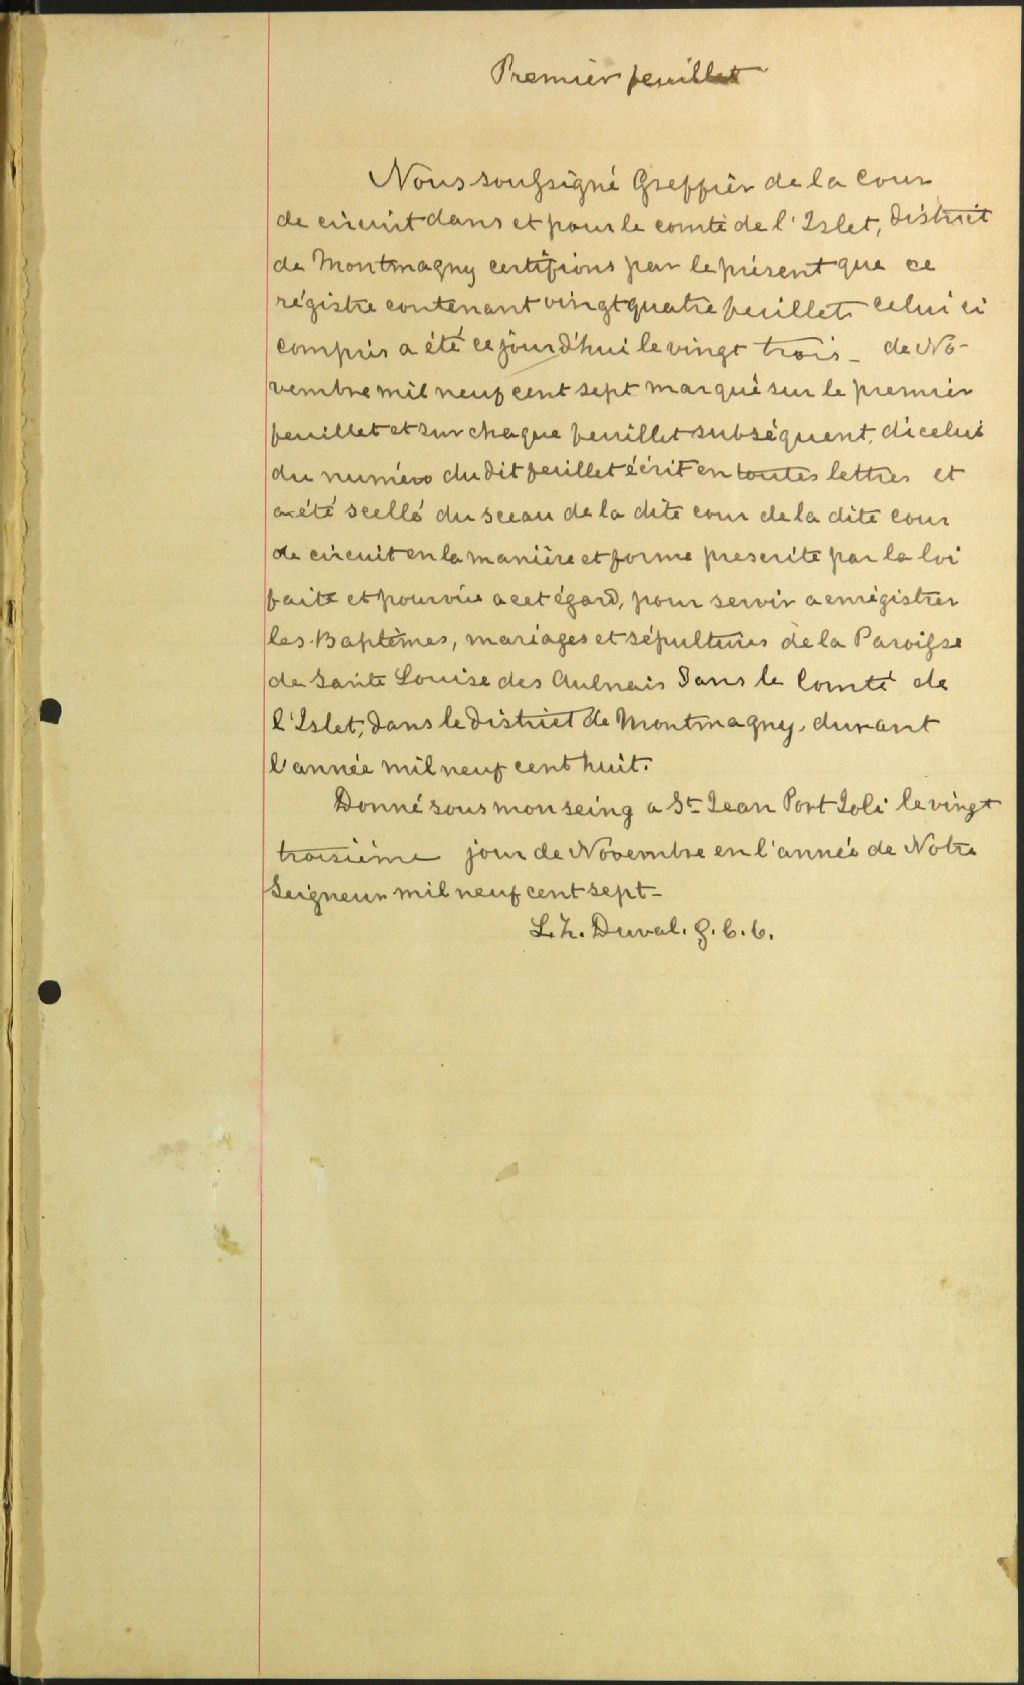 Premier feuillet
Nous soussigné Greffier de la cour
de circuit dans et pour le comté de l'Islet, District
de Montmagny certifions par le présent que ce
régistre contenant vingt quatre feuillets celui ci
compris a été ce jourd'hui le vingt trois _ de No-
vembre mil neuf cent sept marqué sur le premier
feuillet et sur chaque feuillet subséquent, d'icelui
du numéro du dit feuillet écrit en toutes lettres et
a été scellé du sceau de la dite cour de la dite cour
de circuit en la manière et forme prescrite par la loi
faite et pourvue a cet égard, pour servir a enrégistrer
les Baptêmes, mariages et sépultures de la Paroisse
de Sainte Louise des Aulnais Dans le Comté de
l'Islet, Dans le District de Montmagny, durant
l'année mil neuf cent huit.
Donné sous mon seing a St Jean Port Joli le vingt
troisième jour de Novembre en l'année de Notre
Seigneur mil neuf cent sept _
L. Z. Duval. G. C. C.